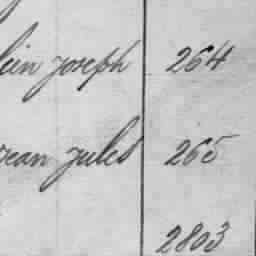 joseph 264
jean jules 265
2803